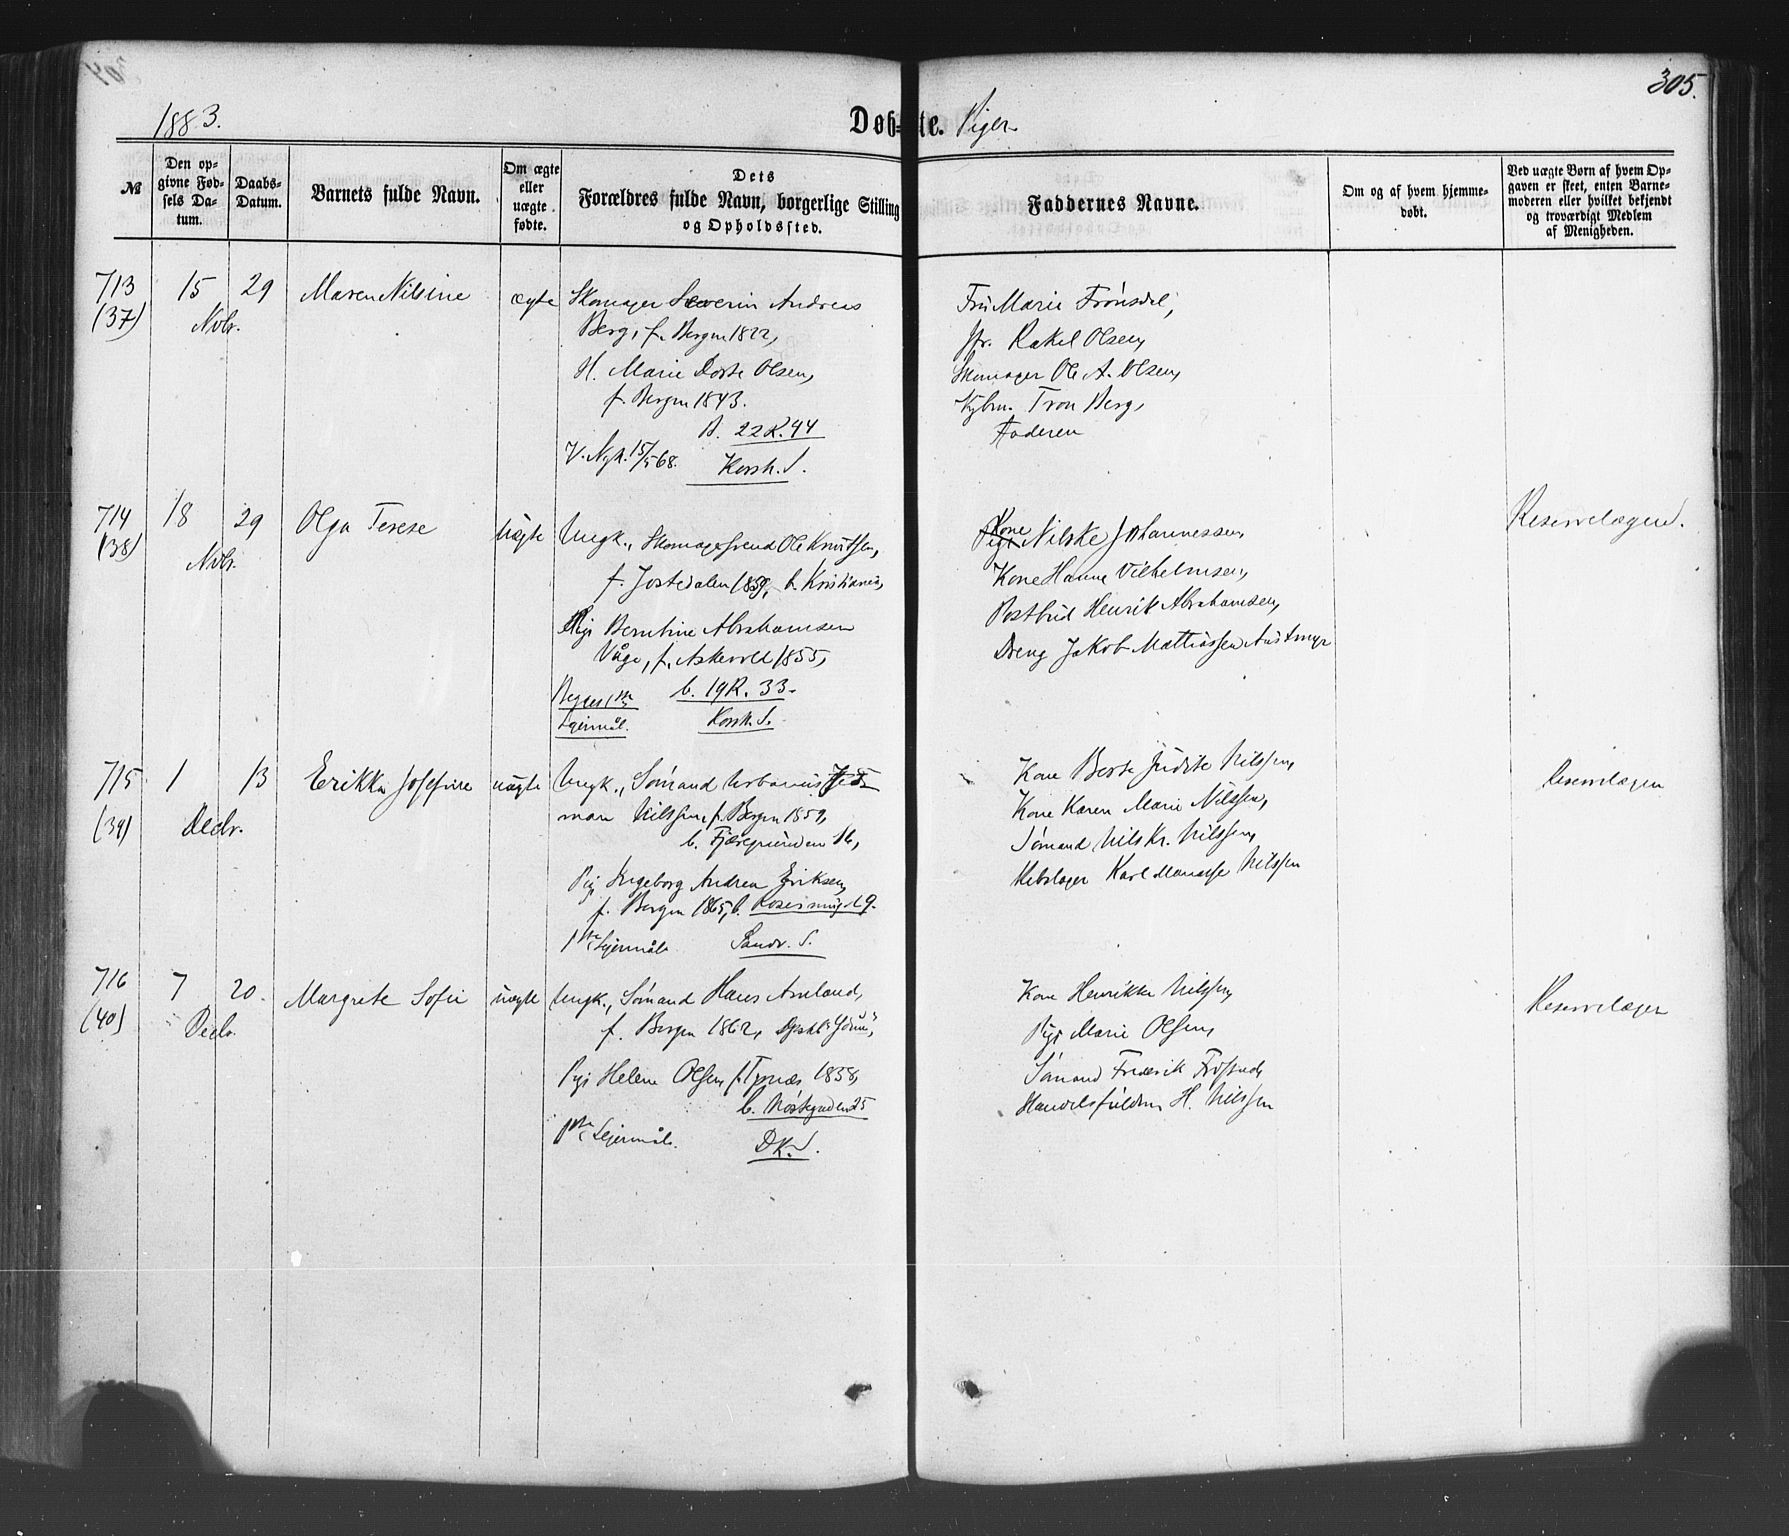 305.
1883.
Døb-te. Piger
№
Den opgivne Fødsels Datum.
Daabs-Datum.
Barnets fulde Navn.
Om ægte eller uægte fødte.
Dets Forældres fulde Navn, borgerlige Stilling og Opholdssted.
Faddernes Navne.
Om og af hvem hjemmedøbt.
Ved uægte Børn af hvem Opgaven er skeet, enten Barnemoderen eller hvilket bekjendt og troværdigt Medlem af Menigheden.
713 15 29 Maren Nilsine ægte Skomager Severin Andreas
(37) Nobr.
Berg, f. Bergen 1822,
H. Marie Dorte Olsen,
f. Bergen 1843.
B. 22 R. 44
V. Nyk. 15/5 68. Korsk. S.
Fru Marie Frønsdal,
Jfr. Rakel Olsen,
Skomager Ole A. Olsen,
Tron Berg,
Faderen
714 18 29 Olga Terese uægte Ungk., Skomagersvend Ole Knutsen,
(38) Nobr.
f. Jostedalen 1859, b. Kristiania,
Pige Berntine Abrahamsen
Våge, f. Askevold 1855,
Begges 1ste b. 19 R. 33.
Lejermål. Korsk. S.
Kone
Pige Nilske Johannessen,
Kone Hanne Vilhelmsen,
Postbud Henrik Abrahamsen,
Dreng Jakob Mathiassen Austmyr
Reservelægen.
715 1 13 Erikka Josefine uægte Ungk., Sømand Urbanus
(39) Decbr.
man Nilssen, f. Bergen 1859,
b. Fjæregrunden 16,
Pig Ingeborg Andrea Eriksen,
f. Bergen 1865, b. 19.
1ste Lejermål. Sandv. S.
Kone Berte Judite Nilssen,
Kone Karen Marie Nilssen,
Sømand Nils Kr. Nilssen,
Rebslager Karl Manasse Nilssen
Reservelægen
716 7 20. Margrete Sofie uægte Ungk., Sømand Hans Amland,
(40) Decbr.
f. Bergen 1862,
Pige Helene Olsen, f. Tysnæs 1858,
b. Nøstegaden 25
1ste Lejermål. DK. S.
Kone Henrikke Nilssen,
Pige Marie Olsen,
Sømand Frederik
Handelsfuldm. H. Nilssen
Reservelægen